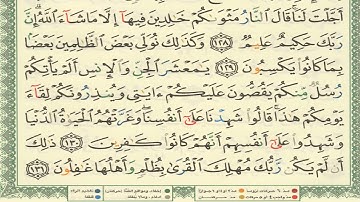 أَجَّلْتَ لَنَا قَالَ النَّارُ مَثْوَىٰكُمْ خَٰلِدِينَ فِيهَآ إِلَّا مَا شَآءَ ٱللَّهُ إِنَّ
رَبَّكَ حَكِيمٌ عَلِيمٌ ١٢٨ وَكَذَٰلِكَ نُوَلِّى بَعْضَ ٱلظَّٰلِمِينَ بَعْضًۢا
بِمَا كَانُوا۟ يَكْسِبُونَ ١٢٩ يَٰمَعْشَرَ ٱلْجِنِّ وَٱلْإِنسِ أَلَمْ يَأْتِكُمْ
رُسُلٌ مِّنكُمْ يَقُصُّونَ عَلَيْكُمْ ءَايَٰتِى وَيُنذِرُونَكُمْ لِقَآءَ
يَوْمِكُمْ هَٰذَا قَالُوا۟ شَهِدْنَا عَلَىٰٓ أَنفُسِنَا وَغَرَّتْهُمُ ٱلْحَيَوٰةُ ٱلدُّنْيَا
وَشَهِدُوا۟ عَلَىٰٓ أَنفُسِهِمْ أَنَّهُمْ كَانُوا۟ كَٰفِرِينَ ١٣٠ ذَٰلِكَ
أَن لَّمْ يَكُن رَّبُّكَ مُهْلِكَ ٱلْقُرَىٰ بِظُلْمٍ وَأَهْلُهَا غَٰفِلُونَ ١٣١